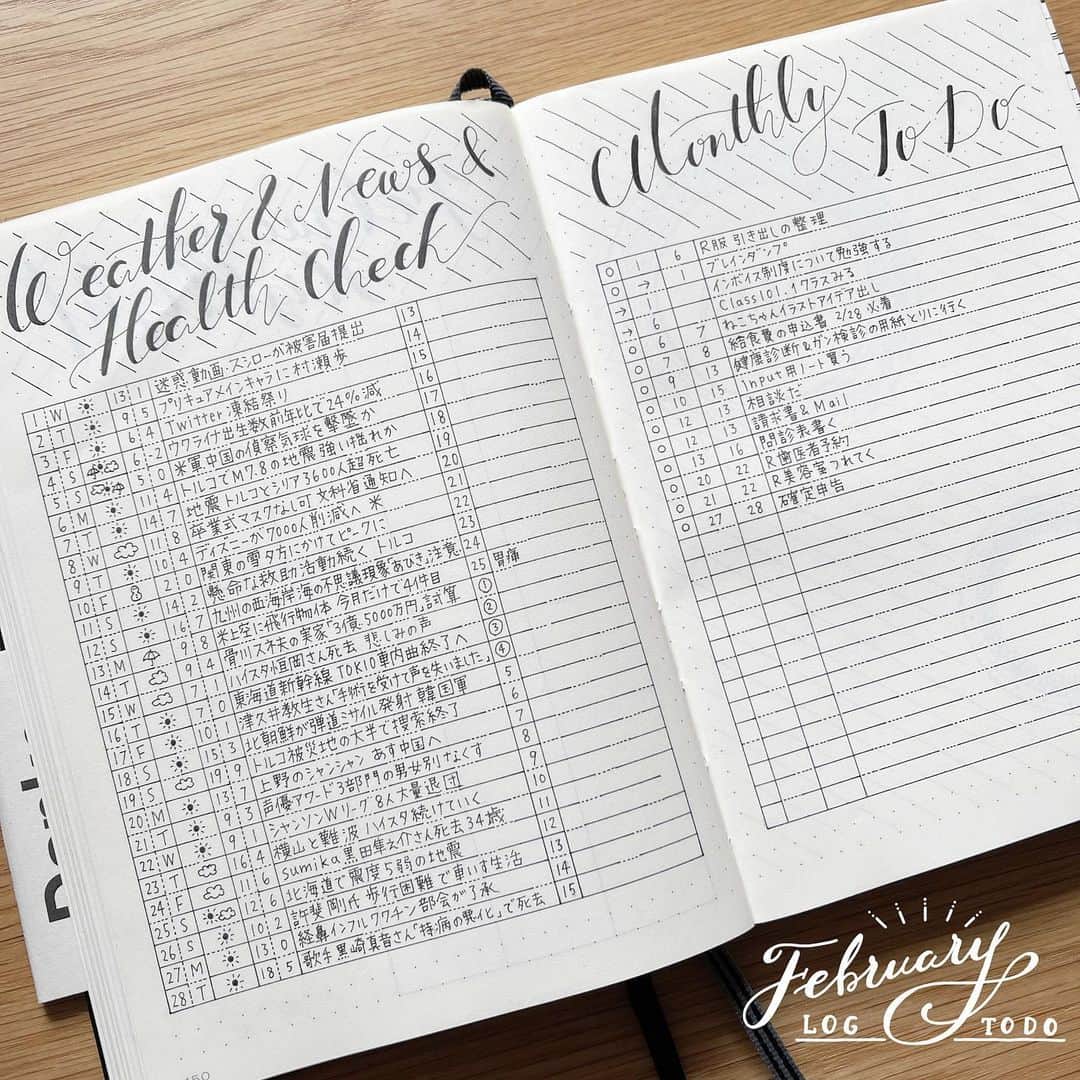 Weather & News &
Health Check
1 W 13 1 迷惑動画 スシローが被害届提出 13
2 T 9 5 プリキュアメインキャラに村瀬歩 14
3 F 6 4 Twitter 凍結祭り 15
4 S 6 2 ウクライナ出生数前年比で24%減 16
5 S 5 0 米軍中国の偵察気球を撃墜か 17
6 M 11 4 トルコでM7.8の地震 強い揺れか 18
7 T 14 7 地震 トルコとシリア3600人超死亡 19
8 W 11 8 卒業式マスクなし可 文科省通知へ 20
9 T 10 4 ディズニーが7000人削減へ 米 21
10 F 2 0 関東の雪 夕方にかけてピークに 22
11 S 14 2 懸命な救助活動続く トルコ 23
12 S 16 7 九州の西海岸海の不思議現象「あびき」注意 24
13 M 9 8 米上空に飛行物体 今月だけで4件目 25 胃痛
14 T 9 4 骨川スネ夫の実家「3億5000万円」試算 ①
15 W 7 1 ハイスタ恒岡さん死去 悲しみの声 ②
16 T 7 0 東海道新幹線 TOKIO車内曲終了へ ③
17 F 10 1 津久井教生さん「手術を受けて声を失いました」 ④
18 S 15 3 北朝鮮が弾道ミサイル発射 韓国軍 5
19 S 19 9 トルコ被災地の大半で捜索終了 6
20 M 13 7 上野のシャンシャン あす中国へ 7
21 T 9 3 声優アワード3部門の男女別なくす 8
22 W 9 1 シャンソンWリーグ 8人大量退団 9
23 T 16 4 横山と難波 ハイスタ続けていく 10
24 F 11 6 sumika黒田隼之介さん死去34歳 11
25 S 12 6 北海道で震度5弱の地震 12
26 S 10 2 許斐剛氏 歩行困難で車いす生活 13
27 M 13 0 経鼻インフルワクチン部会が了承 14
28 T 18 5 歌手黒崎真音さん「持病の悪化」で死去 15
150
Monthly
To Do
6 R服 引き出しの整理
○ 1 1 ブレインダンプ
○ → インボイス制度について勉強する
→ 1 Class101.1クラスみる
→ 6 7 ねこちゃんイラストアイデア出し
○ 6 8 給食費の申込書 2/28 必着
○ 7 13 健康診断&ガン検診の用紙とりに行く
○ 9 15 Input用ノート買う
○ 10 13 相談だ
○ 12 13 請求書&Mail
○ 12 16 問診表書く
○ 13 22 R歯医者予約
○ 20 22 R美容室つれてく
○ 21 28 確定申告
○ 27
February
LOG TODO